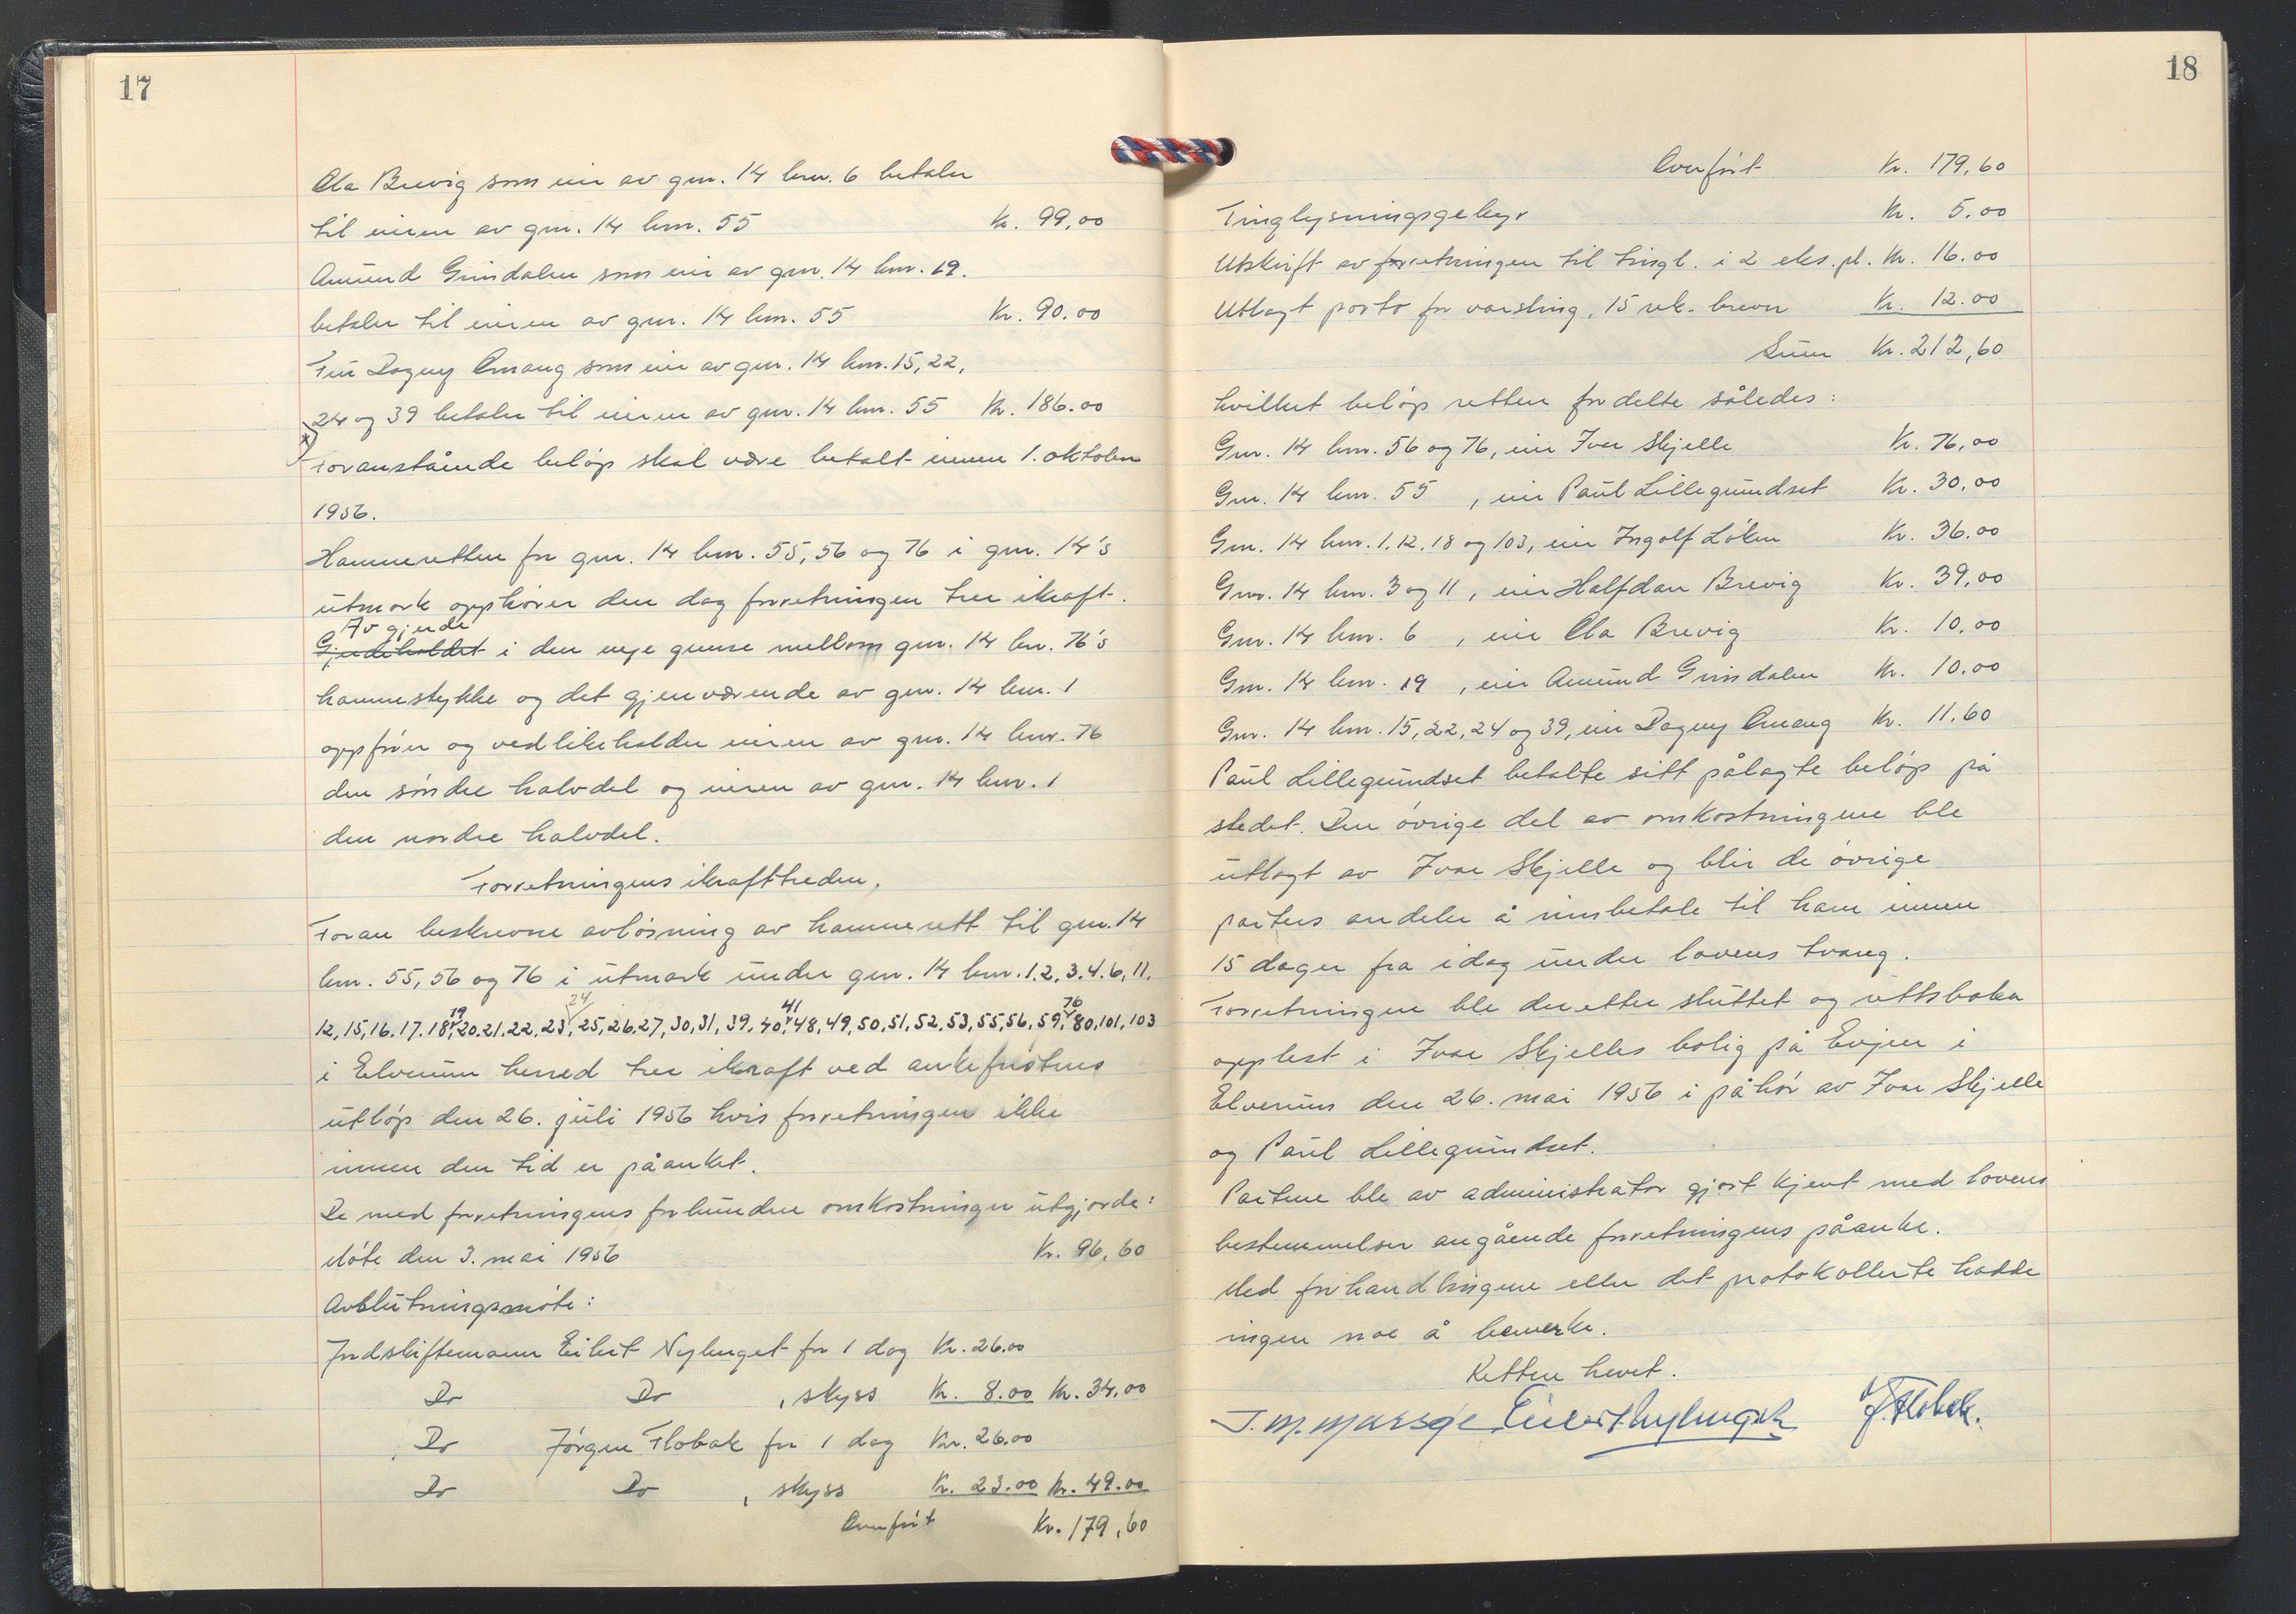 17
Ola Brevig som eier av gnr. 14 bnr. 6 betaler
til eieren av gnr. 14 bnr. 55 Kr. 99,00
Amund Grindalen som eier av gnr. 14 bnr. 19.
betaler til eieren av gnr. 14 bnr. 55 Kr. 90.00
Fru Dagny Omang som eier av gnr. 14 bnr. 15, 22,
24 og 39 betaler til eieren av gnr. 14 bnr. 55 Kr. 186.00
Foranstående beløp skal være betalt innen 1. oktober
1956.
Hamneretten for gnr. 14 bnr. 55, 56 og 76 i gnr. 14's
utmark opphører den dag forretningen trer ikraft.
Av gjerde
Gjerdeholdet i den nye grense mellom gnr. 14 bnr. 76's
hamnestykke og det gjenværende av gnr. 14 bnr. 1
oppfører og vedlikeholder eieren av gnr. 14 bnr. 76
den søndre halvdel og eieren av gnr. 14 bnr. 1
den nordre halvdel.
Forretningens ikrafttreden.
Foran beskrevne avløsning av hamnerett til gnr. 14
bnr. 55, 56 og 76 i utmark under gnr. 14 bnr. 1. 2. 3. 4. 6, 11.
19 24 41 76
12, 15, 16. 17. 18, 20. 21. 22, 23, 25, 26. 27, 30, 31, 39, 40, 48, 49, 50, 51, 52, 53, 55, 56, 59, 80, 101, 103
i Elverum herred trer ikraft ved ankefristens
utløp den 26. juli 1956 hvis forretningen ikke
innen den tid er påanket.
De med forretningens forbundne omkostninger utgjorde:
Møte den 3. mai 1956 Kr. 96,60
Avslutningsmøte:
Jordskiftemann Eilert Nyberget for 1 dag Kr. 26.00
Do Do , skyss Kr. 8.00 Kr. 34,00
Do Jørgen Flobak for 1 dag Kr. 26.00
Do Do , skyss Kr. 23.00 Kr. 49.00
Overført Kr. 179,60
18
Overført Kr. 179,60
Tinglysningsgebyr Kr. 5.00
Utskrift av forretningen til tingl. i 2 eks.pl. Kr. 16.00
Utlagt porto for varsling, 15 rek. brever Kr. 12.00
Sum Kr. 212,60
hvilket beløp retten fordelte således:
Gnr. 14 bnr. 56 og 76, eier Ivar Skjelle Kr. 76,00
Gnr. 14 bnr. 55 , eier Paul Lillegrundset Kr. 30,00
Gnr. 14 bnr. 1. 12. 18 og 103, eier Ingolf Løken Kr. 36.00
Gnr. 14 bnr. 3 og 11 , eier Halfdan Brevig Kr. 39,00
Gnr. 14 bnr. 6 , eier Ola Brevig Kr. 10.00
Gnr. 14 bnr. 19 , eier Amund Grindalen Kr. 10.00
Gnr. 14 bnr. 15, 22, 24 og 39, eier Dagny Omang Kr. 11.60
Paul Lillegrundset betalte sitt pålagte beløp på
stedet. Den øvrige del av omkostningene ble
utlagt av Ivar Skjelle og blir de øvrige
parters andeler å innbetale til ham innen
15 dager fra idag under lovens tvang.
Forretningen ble deretter sluttet og rettsboka
opplest i Ivar Skjelles bolig på Evjen i
Elverum den 26. mai 1956 i påhør av Ivar Skjelle
og Paul Lillegrundset.
Partene ble av administrator gjort kjent med lovens
bestemmelser angående forretningens påanke.
Med forhandlingene eller det protokollerte hadde
ingen noe å bemerke.
Retten hevet.
Eilert Nyberget J. Flobak.